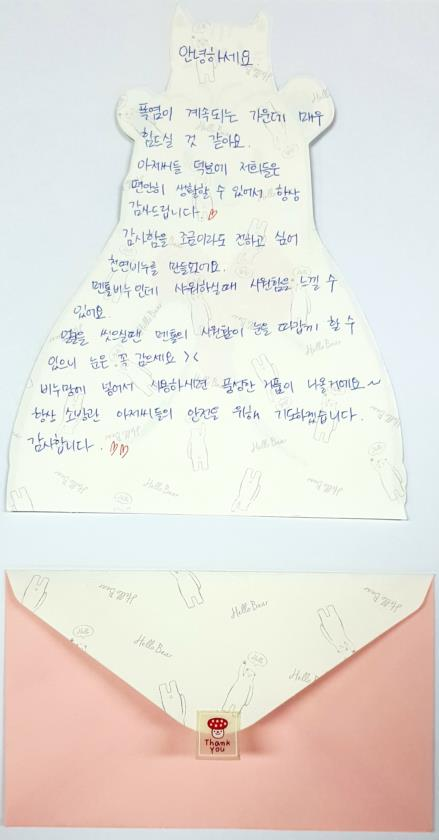 안녕하세요
폭염이 계속되는 가운데 매우
힘드실 것 같아요.
아저씨들 덕분에 저희들은
편안히 생활할 수 있어서 항상
감사드립니다.
감사함을 조금이라도 전하고 싶어
천연비누를 만들었어요.
멘톨비누인데 샤워하실때 시원함을 느낄 수
있어요.
얼굴을 씻으실땐 멘톨의 시원함이 눈을 따갑게 할 수
있으니 눈은 꼭 감으세요 ><
비누망에 넣어서 사용하시면 풍성한 거품이 나올거에요~
항상 소방관 아저씨들의 안전을 위해 기도하겠습니다.
감사합니다.
Hello Bear
Hello Bear
Hello Bear
Hello Bear
Hello
Thank
you